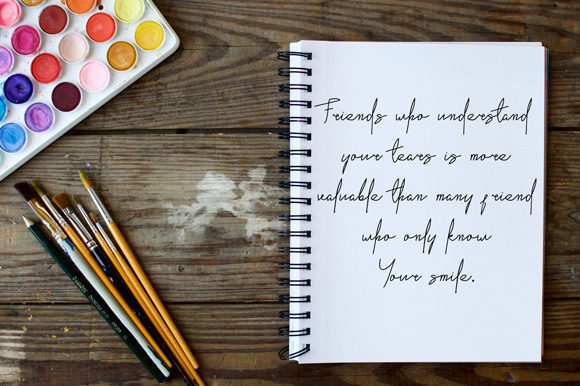 Friends who understand
your tears is more
valuable than many friend
who only know
Your smile.